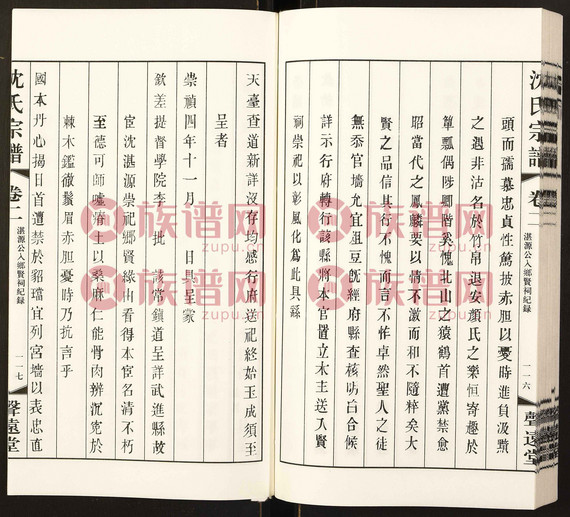 沈氏宗譜
卷二
湛源公入鄉賢祠紀錄
一一六
聲遠堂
頭而孺慕忠貞性篤披赤胆以憂時進負汲黯
之遇非沽名於竹帛退安顏氏之樂恒寄趣於
簞瓢偶陟卿階奚愧北山之猿鶴首遭黨禁愈
昭當代之鳳麟要以情不激而和不隨粹矣大
賢之品信其行不愧而言不怍卓然聖人之徒
無忝官墻允宜俎豆旣經府縣查核明白合候
詳示行府轉行該縣將本官置立木主送入賢
祠崇祀以彰風化爲此具繇
天臺查道新詳沒存均感行府送祀終始玉成須至
呈者
崇禎四年十一月 日具呈蒙
欽差提督學院李 批 該常鎮道呈詳武進縣故
宦沈湛源崇祀鄉賢緣由看得本宦名清不朽
至德可師噓瘠土以桑麻仁能骨肉辨沉寃於
棘木鑑徹鬚眉赤胆憂時乃抗言乎
國本丹心揚日首遭禁於貂璫宜列宮墻以表忠直
沈氏宗譜
卷二
湛源公入鄉賢祠紀錄
一一七
聲遠堂
族谱网
zupu.cn
族谱网
zupu.cn
族谱网
zupu.cn
族谱网
zupu.cn